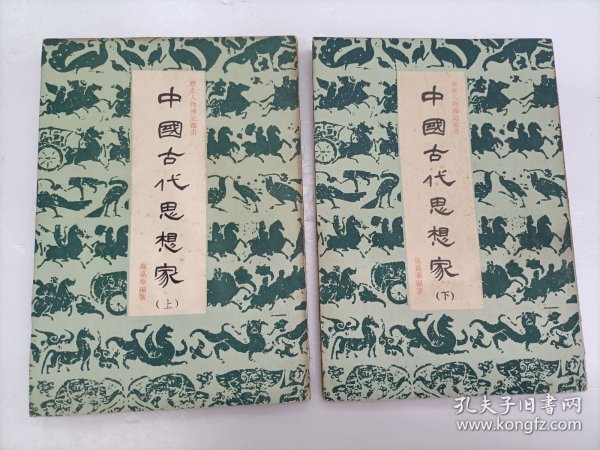 歷史人物傳記叢書
中國古代思想家
(上)
施嘉華編著
歷史人物傳記叢書
中國古代思想家
(下)
施嘉華編著
孔夫子旧书网
www.kongfz.com